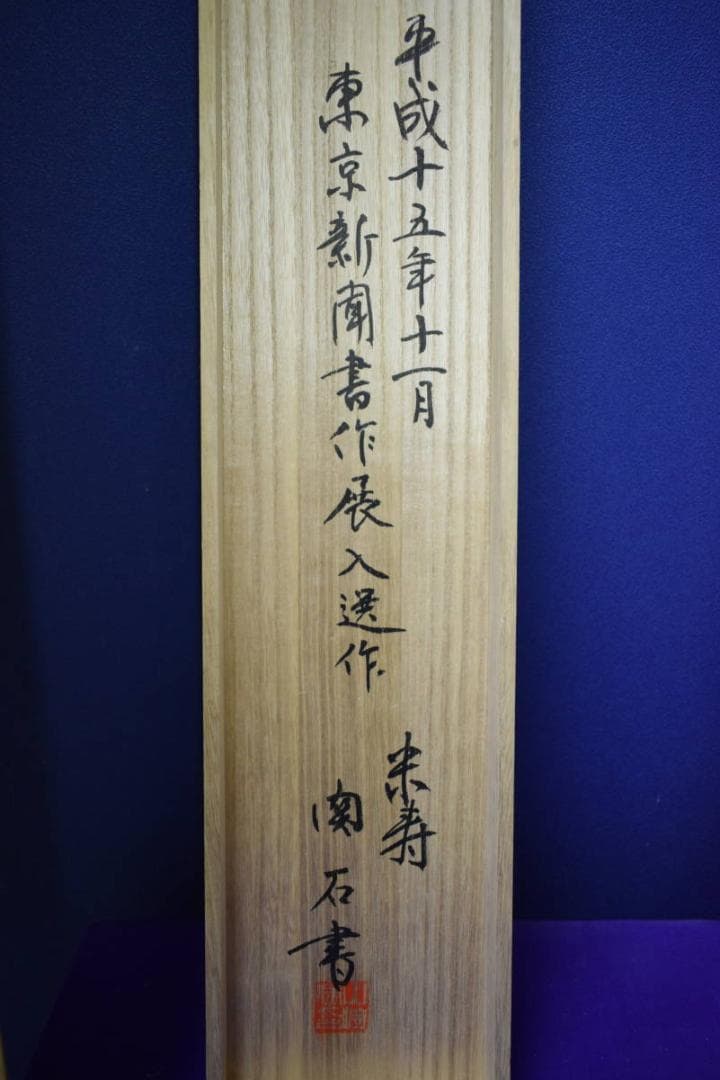 平成十五年十一月
東京新聞書作展入選作
米寿
関石書